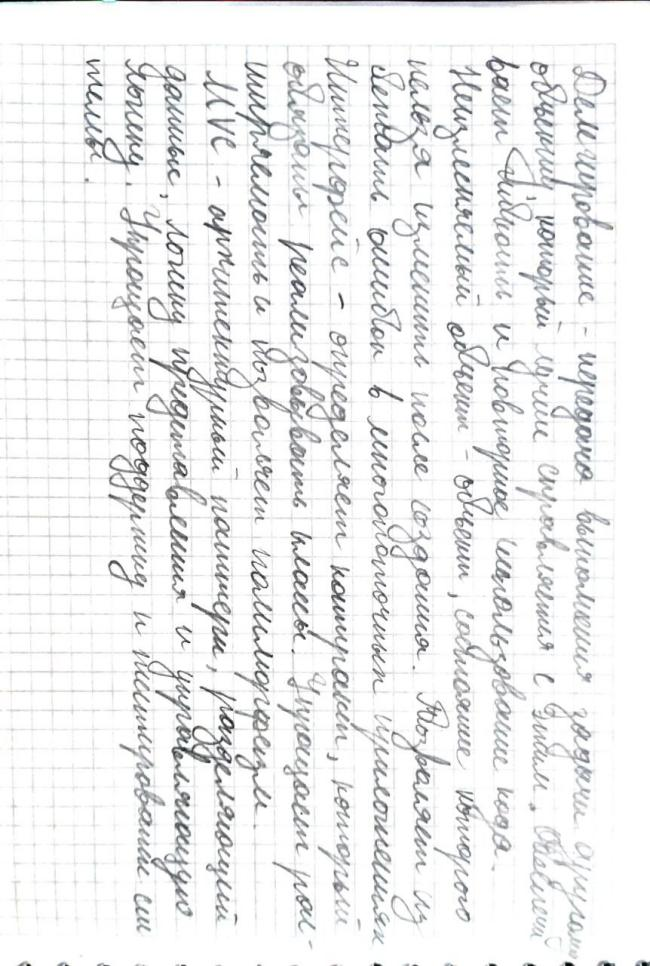 Делегирование - передача выполнения задачи другому
объекту, который лучше справляется с этим. Обеспечи
вает гибкость и повторное использование кода.
Неизменяемый объект - объект, состояние которого
нельзя изменить после создания. Позволяет из
бежать ошибок в многопоточных приложениях
Интерфейс - определяет контракт, который
обязаны реализовывать классы. Упрощает рас-
ширяемость и позволяет полиморфизм.
MVC - архитектурный паттерн, разделяющий
данные, логику представления и управляющую
логику. Упрощает поддержку и тестирование сис
темы.